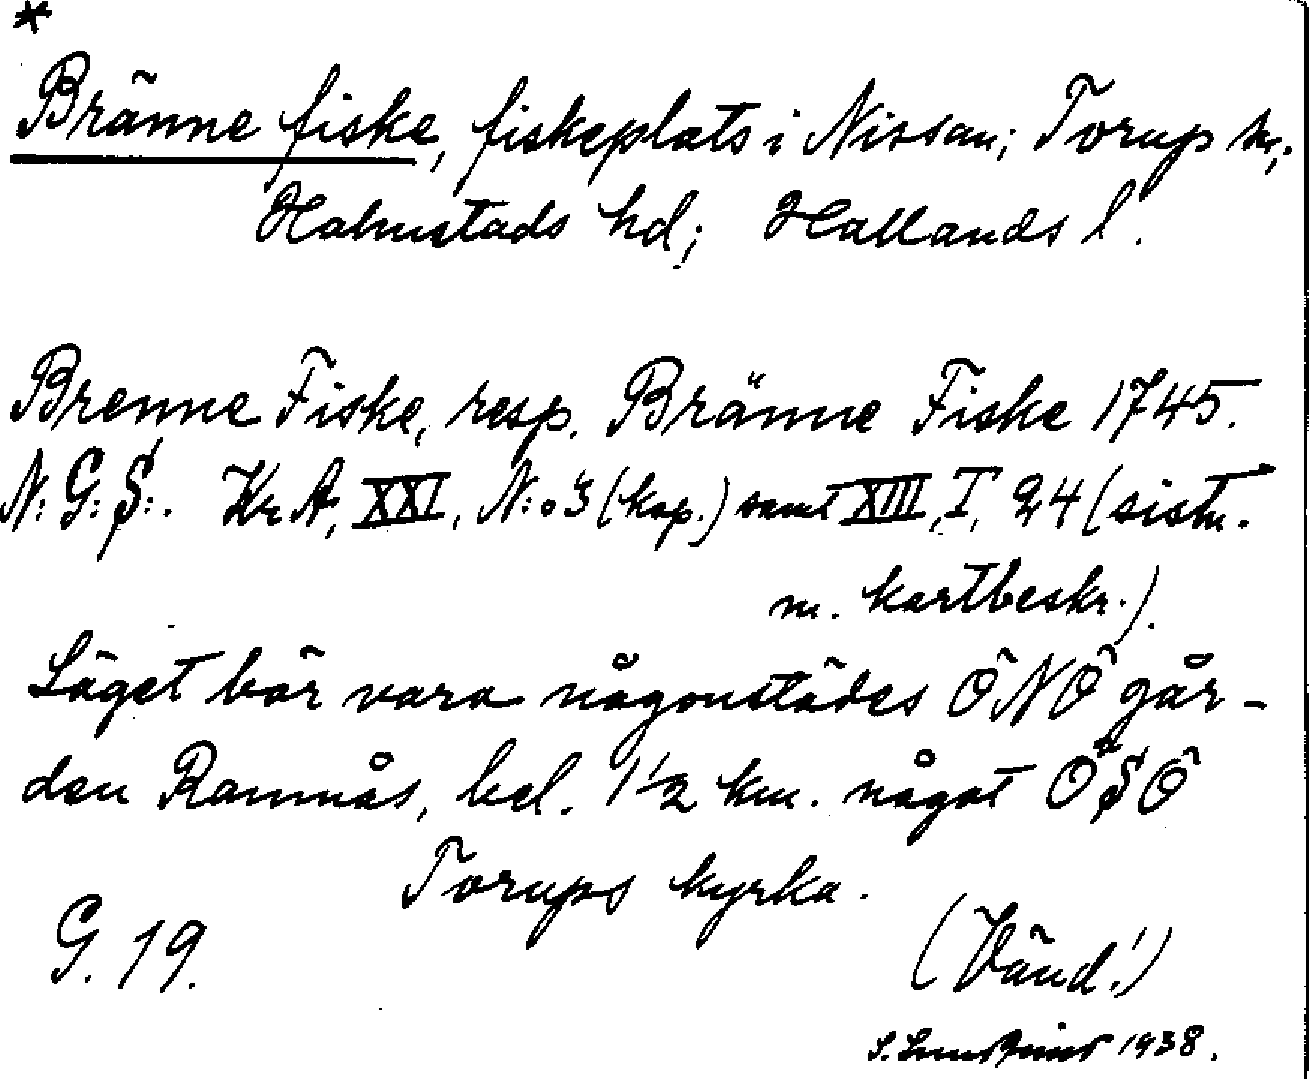 *
Bränne fiske, fiskeplats i Nissan; Torup sn,
Halmstads hd; Hallands l.
Brenne Fiske, resp. Bränne Fiske 1745.
N: G: S:. Kr. A, XXI, N:o 3 (kop.) samt XIII, I, 24 (sistn.
m. kartbeskr.).
Läget bör vara någonstädes ÖNÖ går-
den Ramnås, bel. 1 1/2 km. något ÖSÖ
Torups kyrka.
G. 19.
(Vänd!)
S. 1938.